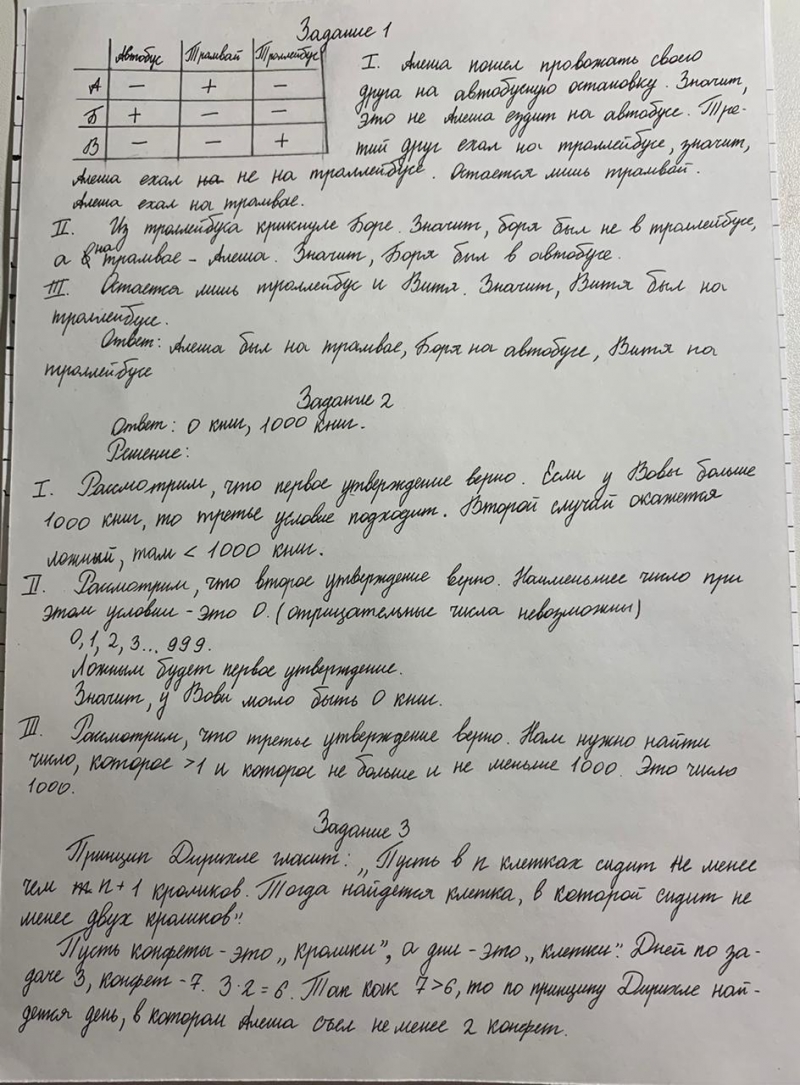 Задание 1
Автобус Трамвай Троллейбус
А – + –
Б + – –
В – – +
I. Алеша пошел провожать своего
друга на автобусную остановку. Значит,
это не Алеша ездит на автобусе. Тре-
тий друг ехал на троллейбусе, значит,
Алеша ехал на не на троллейбусе. Остается лишь трамвай.
Алеша ехал на трамвае.
II. Из троллейбуса крикнули Боре. Значит, боря был не в троллейбусе,
а на трамвае – Алеша. Значит, Боря был в автобусе.
III. Остается лишь троллейбус и Витя. Значит, Витя был на
троллейбусе.
Ответ: Алеша был на трамвае, Боря на автобусе, Витя на
троллейбусе
Задание 2
Ответ: 0 книг, 1000 книг.
Решение:
I. Рассмотрим, что первое утверждение верно. Если у Вовы больше
1000 книг, то третье условие подходит. Второй случай окажется
ложный, там < 1000 книг.
II. Рассмотрим, что второе утверждение верно. Наименьшее число при
этом условии – это 0. (отрицательные числа невозможны)
0, 1, 2, 3... 999.
Ложным будет первое утверждение.
Значит, у Вовы могло быть 0 книг.
III. Рассмотрим, что третье утверждение верно. Нам нужно найти
число, которое >1 и которое не больше и не меньше 1000. Это число
1000.
Задание 3
Принцип Дирихле гласит: „Пусть в n клетках сидит не менее
чем n + 1 кроликов. Тогда найдется клетка, в которой сидит не
менее двух кроликов".
Пусть конфеты – это „кролики", а дни – это „клетки". Дней по за-
даче 3, конфет – 7. 3·2 = 6. Так как 7>6, то по принципу Дирихле най-
дется день, в котором Алеша съел не менее 2 конфет.